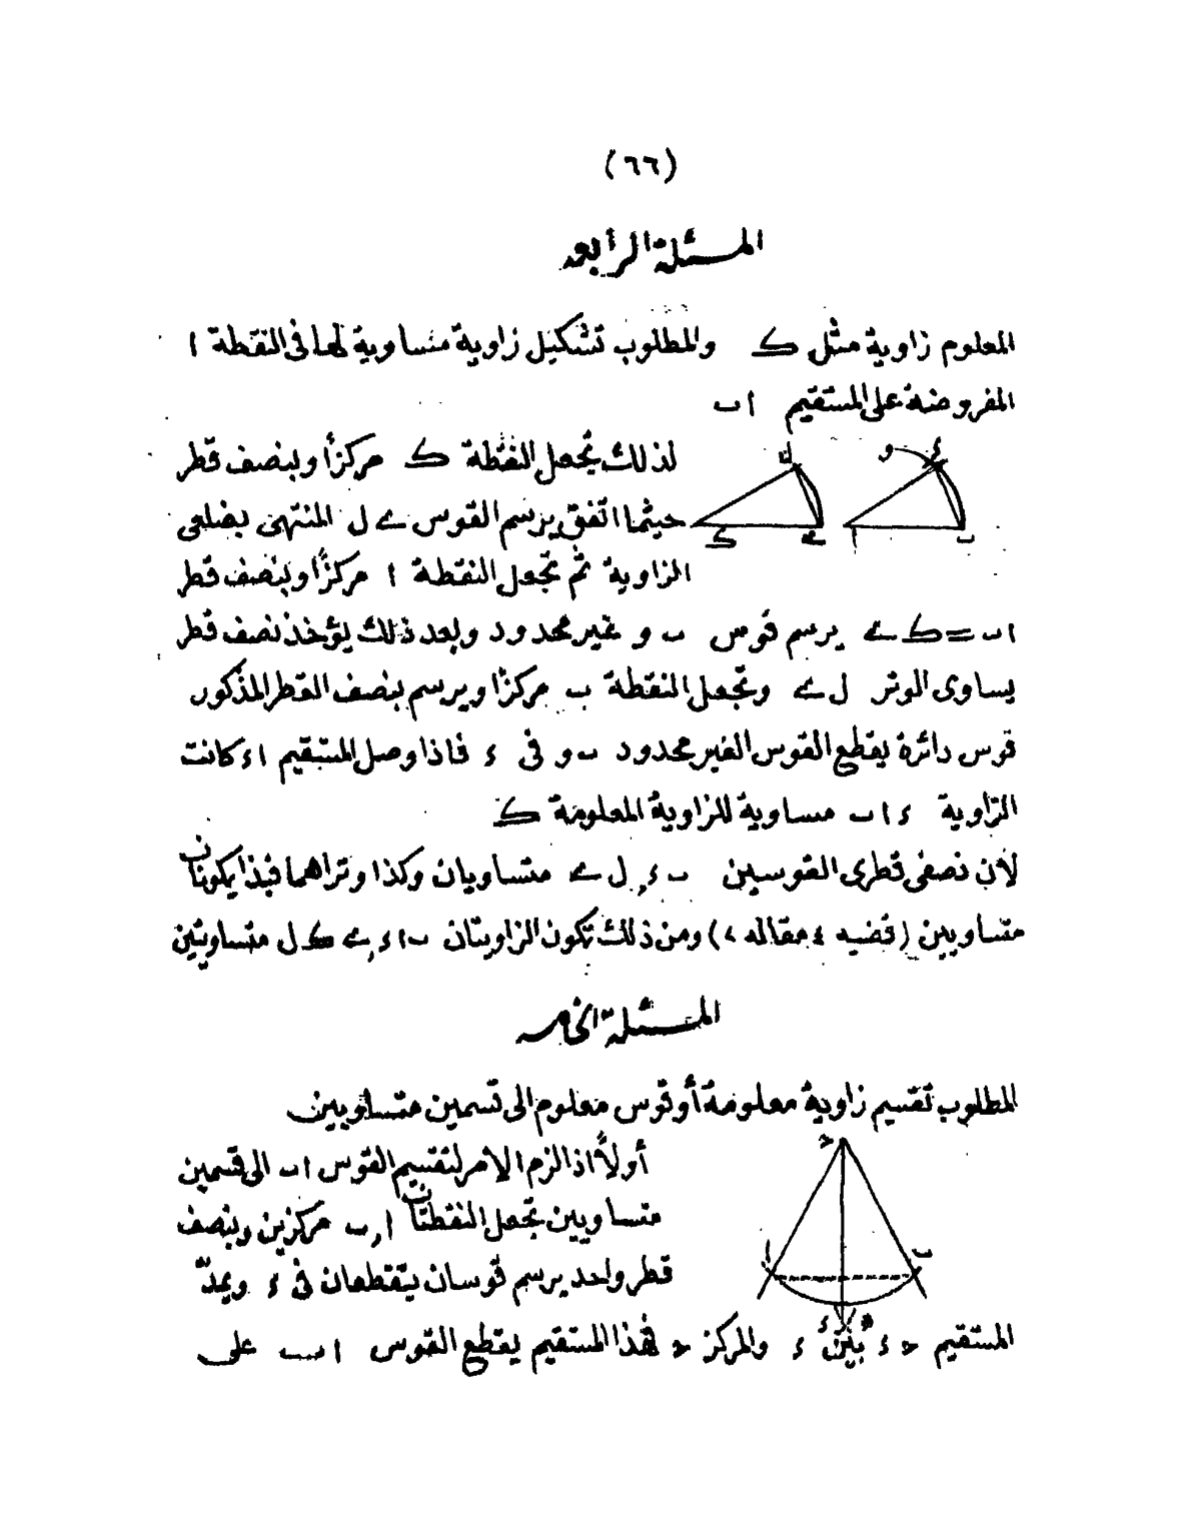 (٦٦)
المسئلة الرابعه
المعلوم زاوية مثل ك والمطلوب تشكيل زاوية متساوية لها فى النقطة ا
المفروضة على المستقيم ا ب
لذلك تجعل النقطة ك مركزاً وبنصف قطر
حيثما اتفق يرسم القوس ے ل المنتهى بضلعى
الزاوية ثم تجعل النقطة ا مركزاً وبنصف قطر
ا ب = ك ے يرسم قوس ب و غير محدود وبعد ذلك يؤخذ نصف قطر
يساوى الموتر ل ے وتجعل النقطة ب مركزاً ويرسم بنصف القطر المذكور
قوس دائرة يقطع القوس الغير محدود ب و فى ء فاذا وصل المستقيم ا ء كانت
الزاوية ء ا ب مساوية للزاوية المعلومة ك
لان نصفى قطرى القوسين ب ء , ل ے متساويان وكذا وتراهما فبذا يكونان
متساويين (قضيه ٤ مقاله ٢) ومن ذلك تكون الزاويتان ب ا ء , ے ك ل متساويتين
المسئلة الخامسه
المطلوب تقسيم زاوية معلومة أو قوس معلوم الى قسمين متساويين
أولاً اذا لزم الامر لتقسيم القوس ا ب الى قسمين
متساويين تجعل النقطتان ا , ب مركزين وبنصف
قطر واحد يرسم قوسان يتقطعان فى ء ويمدّ
المستقيم ح ء بين ء والمركز ح فهذا المستقيم يقطع القوس ا ب على